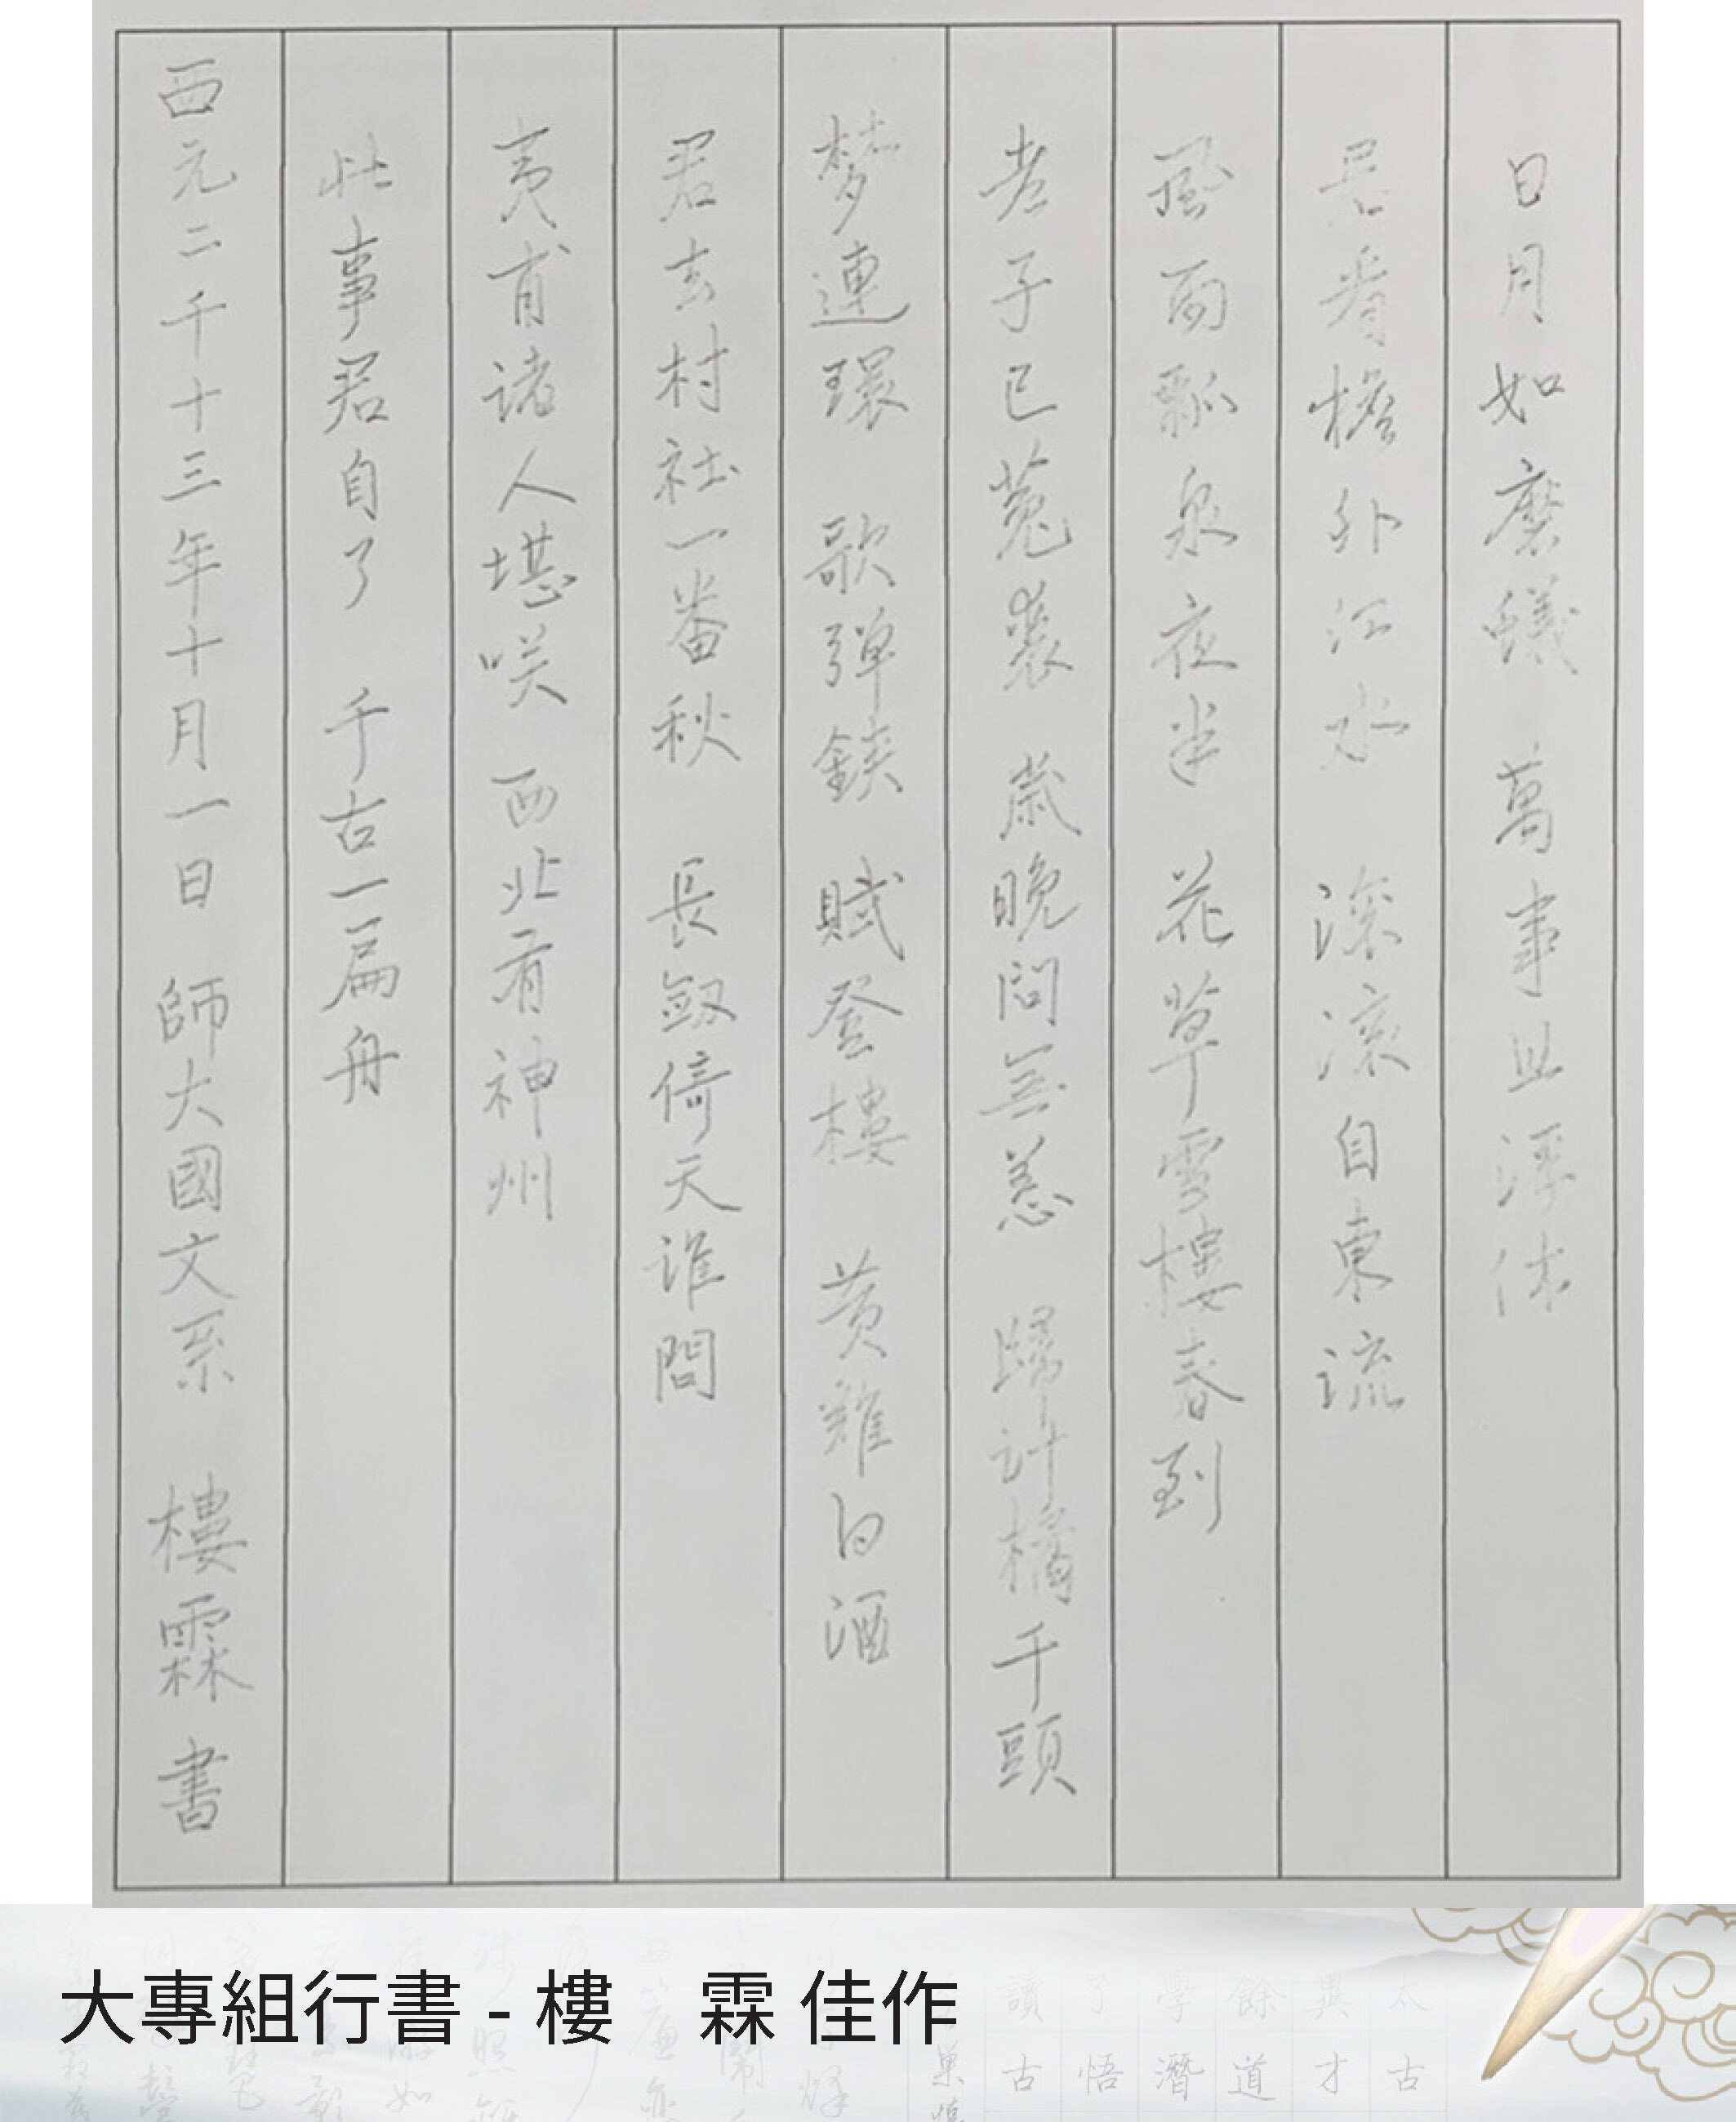 日月如磨蟻 萬事且浮休
君看檐外江水 滾滾自東流
風雨瓢泉夜半 花草雪樓春到
老子已菟裘 歲晚問無恙 歸計橘千頭
夢連環 歌彈鋏 賦登樓 黃雞白酒
君去村社一番秋 長劔倚天誰問
夷甫諸人堪咲 西北有神州
此事君自了 千古一扁舟
西元二千十三年十月一日 師大國文系 樓霖書
大專組行書 - 樓 霖 佳作